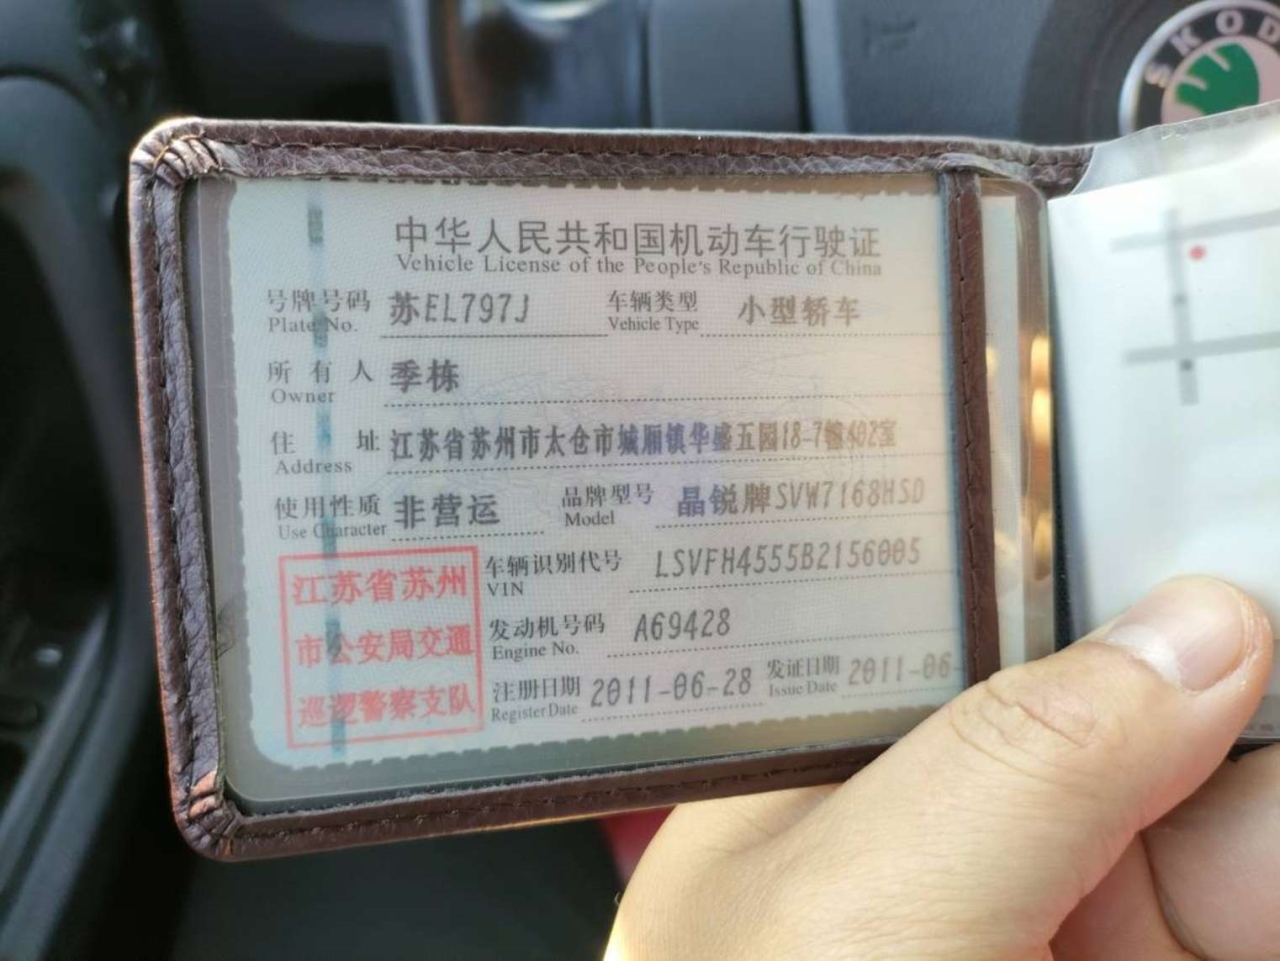 SKOD
中华人民共和国机动车行驶证
Vehicle License of the People's Republic of China
号牌号码 苏EL797J 车辆类型 小型轿车
Plate No. Vehicle Type
所有人 季栋
Owner
住址 江苏省苏州市太仓市城厢镇华盛五园18-7幢402室
Address
使用性质 非营运 品牌型号 晶锐牌SVW7168HSD
Use Character Model
车辆识别代号 LSVFH4555B2156005
VIN
发动机号码 A69428
Engine No.
注册日期 2011-06-28 发证日期 2011-06-
Register Date Issue Date
江苏省苏州
市公安局交通
巡逻警察支队